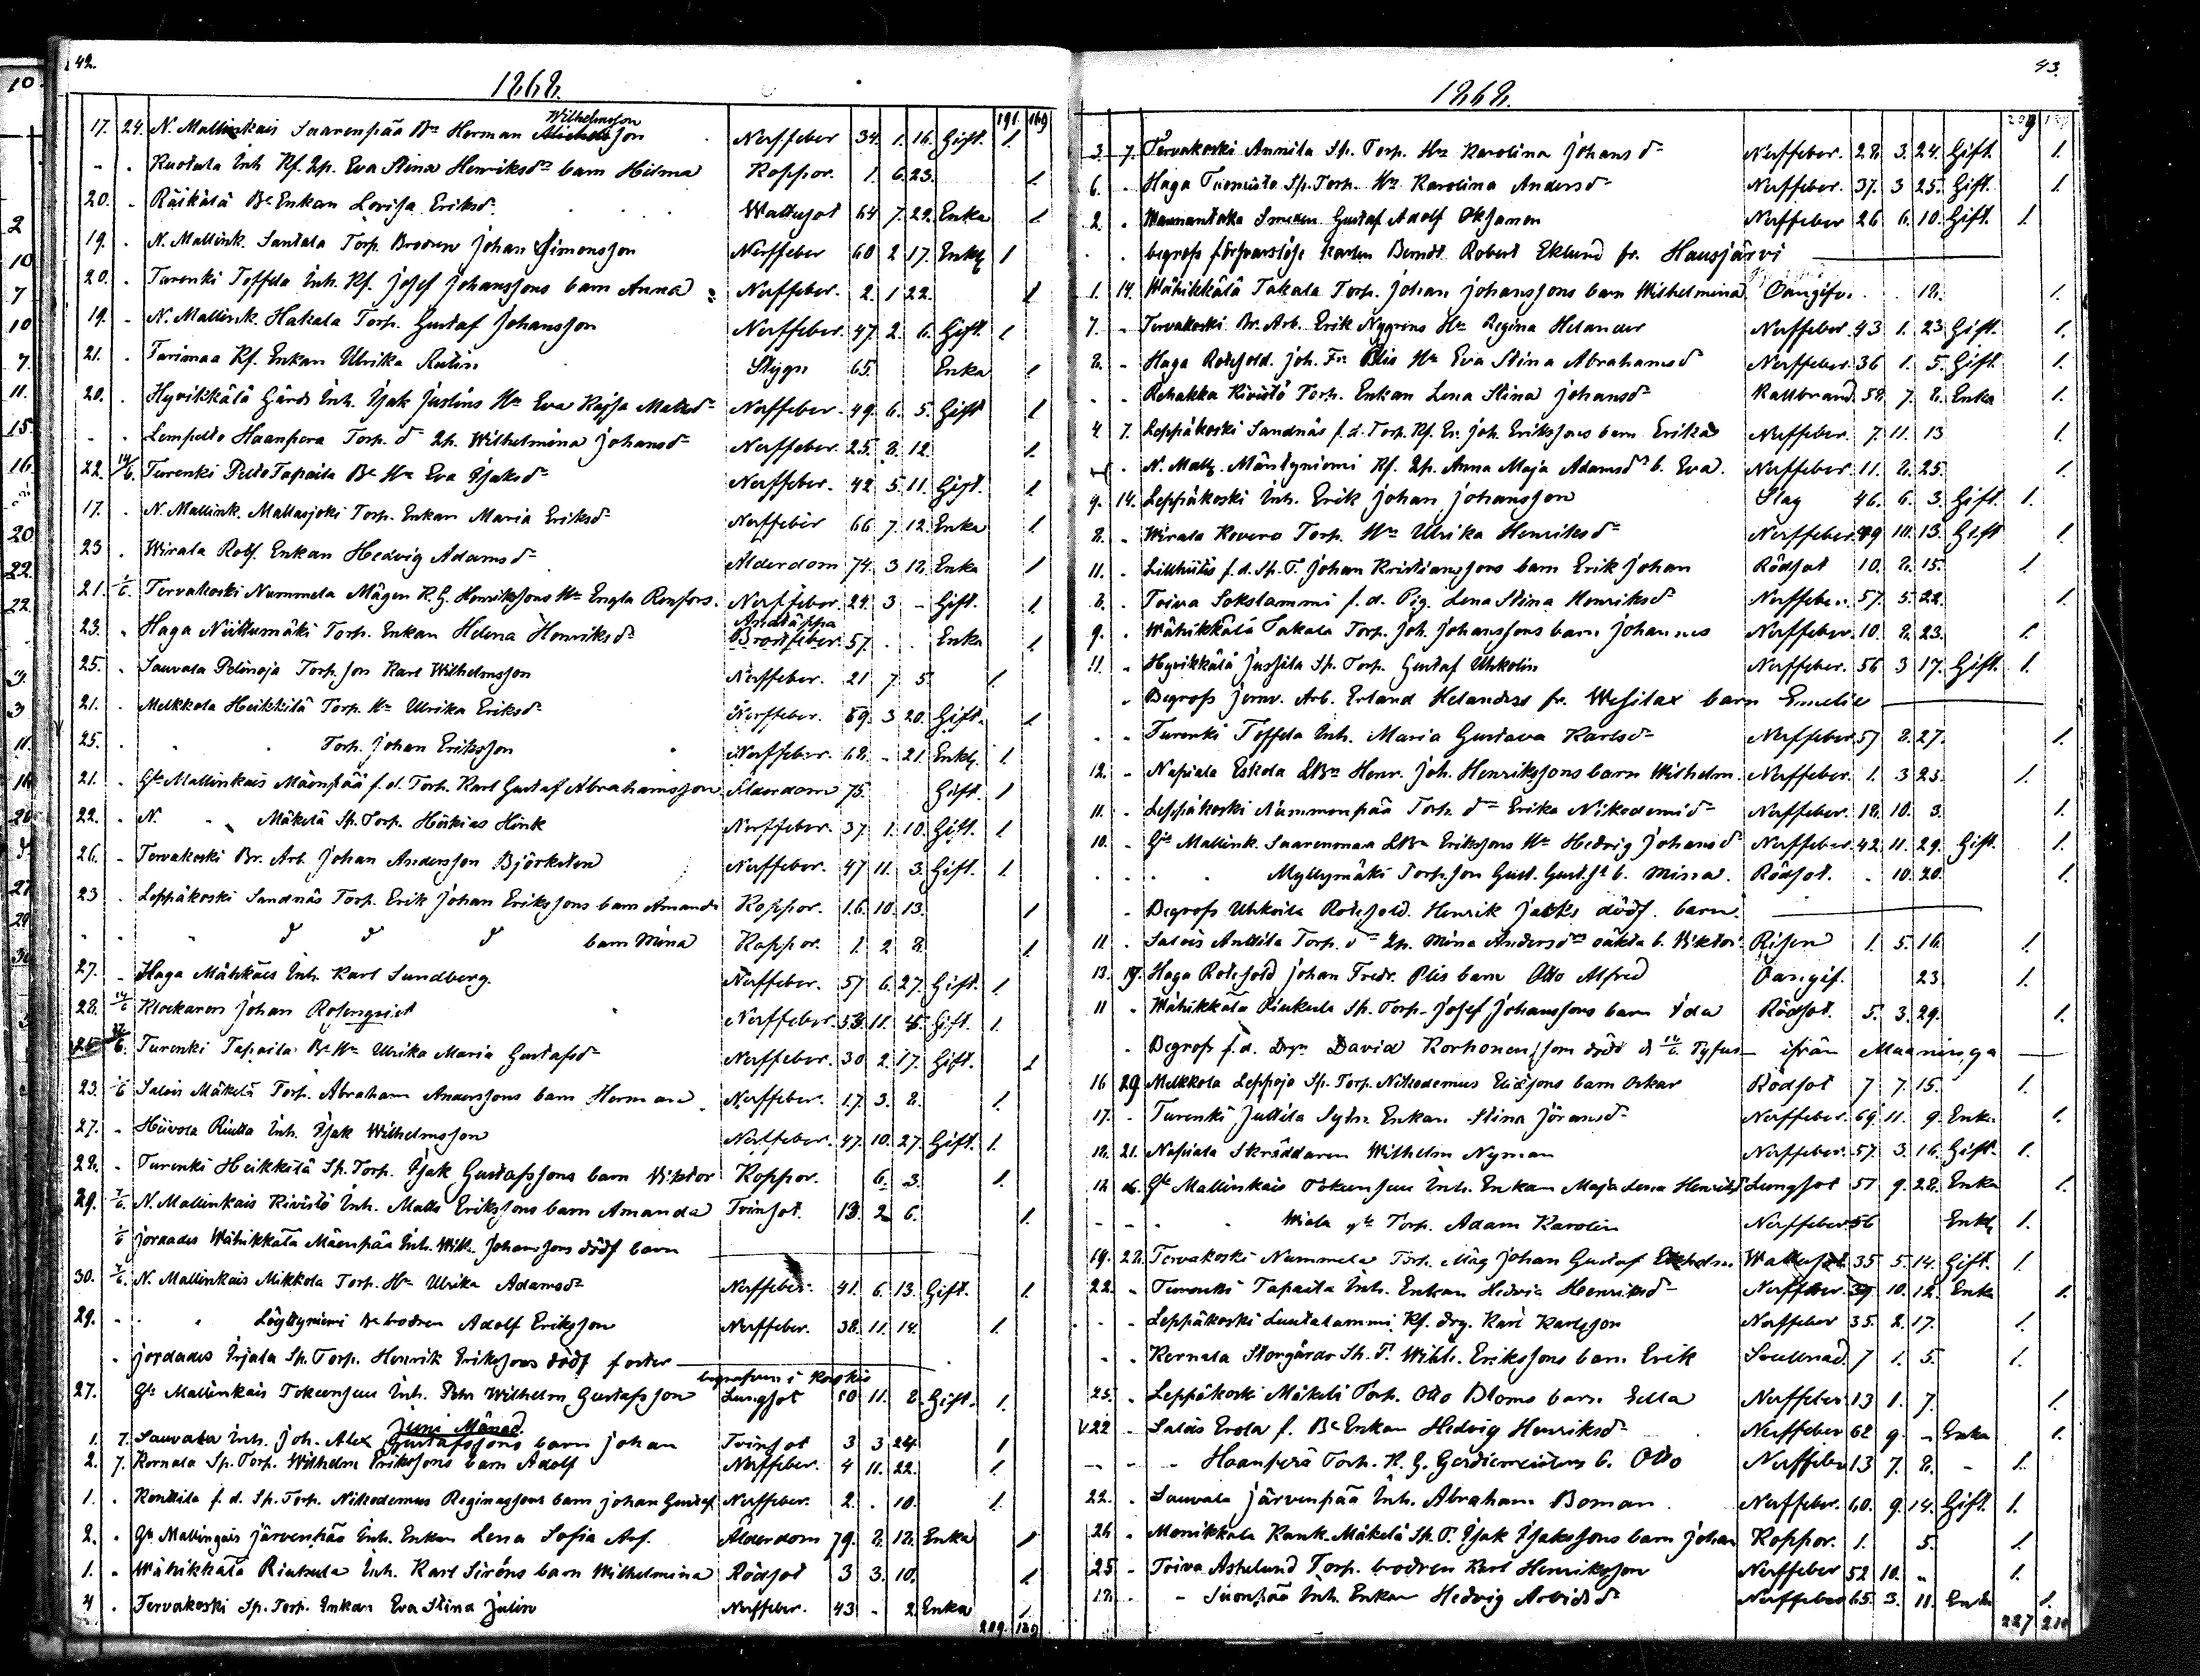 42.
1868.
191. 169
17. 24. N. Mallinkais Saarenpää Bn Herman Wilhelmsson Nerffeber 34. 1. 16. Gift. 1.
- . Inh. Kf. Hp. Eva Stina Henriksdr barn Hilma Koppor. 1. 6. 23. 1.
20. . Räikälä Be Enkan Lovisa Eriksdr Wattusot 64 7. 22. Enka 1.
19. . N. Mallink. Santala Torp. Brodren Johan Simonsson Nerffeber 60 2 17. Enkl. 1
20. . Turenki Toffela Inh. Kf. Josef Johanssons barn Anna Nerffeber. 2. 1 22. 1
19. . N. Mallink. Hakala Torp. Gustaf Johansson Nerffeber. 47. 2. 6. Gift. 1
21. . Tarimaa Kf. Enkan Ulrika Stygn 65. Enka 1.
20. . Hyvikkälä Gårds Inh. Isak Justins Hu Eva Kajsa Mattsdr Nerffeber. 49. 6. 5. Gift 1
- . Lempelto Haanpera Torp. dr Hp. Wilhelmina Johansdr Nerffeber. 25. 8. 12. 1.
22. 14/6. Turenki Pelto Tapaila Be Hu Eva Isaksdr Nerffeber. 42 5. 11. Gift. 1.
17. . N. Mallink. Mallasjoki Torp. Enkan Maria Eriksdr Nerffeber 66 7. 12. Enka 1.
23 . Wirala Rotf. Enkan Hedvig Adamsdr Ålderdom 74. 3 12. Enka 1
21. 7/6. Tervakoski Nummela Mågen K. G. Henrikssons Hu Engla Renfors. Nerffeber. 24. 3 - Gift. 1
23. . Haga Niittumäki Torp. Enkan Helena Henriksdr Andtäppa 57. . . Enka 1.
25. . Sauvala Torp. son Karl Wilhelmsson Nerffeber. 21 7. 5. 1.
21. . Melkkola Heikkilä Torp. Hu Ulrika Eriksdr Nerffeber. 69. 3 20. Gift. 1
25. . " " Torp. Johan Eriksson Nerffeber. 62. - 21. Enkl. 1.
21. . Gla Mallinkais Mäenpää f. d. Torp. Karl Gustaf Abrahamsson Ålderdom 75. Gift. 1
22. . N. " Mäkelä Sp. Torp. Heikias Hink Nerffeber. 37. 1. 10. Gift. 1
26. . Tervakoski Br. Arb. Johan Andersson Björksten Nerffeber. 47 11. 3. Gift. 1.
23 . Leppäkoski Sandnäs Torp. Erik Johan Erikssons barn Amanda Koppor. 16. 10. 13. 1
" . " d d d barn Mina Koppor. 1. 2 8. 1.
27. . Haga Mätikäes Inh. Karl Sundberg. Nerffeber. 57 6. 27. Gift. 1.
28. 14/6 Klockaren Johan Rosenqvist Nerffeber. 53. 11. 5. Gift. 1.
25 27/6. Turenki Tapaila Be Hu Ulrika Maria Gustafsdr Nerffeber. 30 2. 17. Gift. 1
23. 7/6 Salois Mäkelä Torp. Abraham Anderssons barn Herman Nerffeber. 17. 3. 8. 1.
27. . Hiivola Rintta Inh. Isak Wilhelmsson Nerffeber. 47. 10. 27. Gift. 1.
28. . Turenki Heikkilä Sp. Torp. Isak Gustafssons barn Viktor Koppor. 6. 3. 1.
29. 7/6. N. Mallinkais Kivistö Inh. Matts Erikssons barn Amanda Tvinsot. 13. 2 6. 1.
7/6 jordades Wähikkälä Mäenpää Inh. Wilh. Johanssons dödf barn
30. 7/6. N. Mallinkais Mikkola Torp. Hu Ulrika Adamsdr Nerffeber. 41. 6. 13. Gift. 1.
29. . " Löyttyniemi Be brodren Adolf Eriksson Nerffeber. 38. 11. 14. 1.
. jordades Irjala Sp. Torp. Henrik Erikssons dödf foster
begrafven i Koskis
27. Gla Mallinkais Tokunsuu Inh. Petr Wilhelm Gustafsson Lungsot 50 11. 8. Gift. 1.
Juni Månad.
1. 7. Sauvala Inh. Joh. Alex Gustafssons barn Johan Tvinsot 3 3 24. 1
2. 7. Kernala Sp. Torp. Wilhelm Erikssons barn Adolf Nerffeber. 4 11. 22. 1.
1. . Kenttilä f. d. Sp. Torp. Nikodemus Reginassons barn Johan Gustaf Nerffeber. 2. . 10. 1.
2. . Gla Mallingais Järvenpää Inh. Enkan Lena Sofia Arf. Ålderdom 79. 8. 12. Enka 1
1. . Wähikkälä Rinkula Inh. Karl Siréns barn Wilhelmina Rödsot 3 3. 10. 1.
4 . Tervakoski Sp. Torp. Enkan Eva Stina Julin Nerffeber. 43 - 2. Enka 1.
209. 189
43.
1868.
209 189
3. 7. Tervakoski Annila Sp. Torp. Hu Karolina Johansdr Nerffeber. 28. 3. 24. Gift. 1.
6. . Haga Tuomisto Sp. Torp. Hu Karolina Andersdr Nerffeber. 37. 3 25. Gift. 1.
2. . Wannantaka Smeden Gustaf Adolf Oksanen Nerffeber 26 6. 10. Gift. 1.
. . begrofs försvarslöse karlen Berndt Robert Eklund fr. Hausjärvi
1. 14. Wähikkälä Takala Torp. Johan Johanssons barn Wilhelmina Oangifv. . . 18. 1.
7. . Tervakoski Br. Arb. Erik Nygrens Hu Regina Helander Nerffeber 43 1. 23 Gift. 1.
8. . Haga Rotesold. Joh. Fr. Plis Hu Eva Stina Abrahamsdr Nerffeber. 36 1. 5. Gift. 1.
. . Rehakka Kivistö Torp. Enkan Lena Stina Johansdr Kallbrand. 58. 7. 8. Enka 1.
4. 7. Leppäkoski Sandnäs f. d. Torp. Kf. Er. Joh. Erikssons barn Erika Nerffeber. 7. 11. 13 1.
. N. Mall. Mäntyniemi Kf. Hp. Anna Maja Adamsdrs b. Eva. Nerffeber. 11. 8. 25. 1.
9. 14. Leppäkoski Inh. Erik Johan Johansson Slag 46. 6. 3. Gift. 1.
8. . Wirala Rovero Torp. Hu Ulrika Henriksdr Nerffeber. 49 10. 13. Gift 1.
11. . Lillhiitis f. d. Sp. T. Johan Kristianssons barn Erik Johan Rödsot 10. 8. 15. 1.
8. . Toiva Sokslammi f. d. Pig. Lena Stina Henriksdr Nerffeber. 57. 5. 22. 1.
9. . Wähikkälä Takala Torp. Joh. Johanssons barn Johannes Nerffeber. 10. 8. 23. 1.
11. . Hyvikkälä Jussila Sp. Torp. Gustaf Uhkolin Nerffeber. 56 3 17. Gift. 1.
. Begrofs jernv. Arb. Erland Helanders fr. Wesilax barn Emelie
. . Turenki Toffela Inh. Maria Gustava Karlsdr Nerffeber. 57 8. 27. 1.
12. . Napiala Eskola LBn Henr. Joh. Henrikssons barn Wilhelm. Nerffeber. 1. 3 23. 1.
11. . Leppäkoski Nummenpää Torp. dr Erika Nikodemidr Nerffeber. 18. 10. 3. 1.
10. . Gla Mallink. Saarenmaa LBn Erikssons Hu Hedvig Johansdr Nerffeber. 42. 11. 29. Gift. 1.
. . " Myllymäki Torp. son Gust. Gustfs b. Mina. Rödsot. . 10. 20. 1.
. Begrofs Uhkoila Rotesold. Henrik Jacks dödf. barn.
11 . Salois Anttila Torp. dr Hp. Mina Andersdrs oäkta b. Viktor Risen 1. 5. 16. 1.
13. 19. Haga Rotesold Johan Fredr. Plis barn Otto Alfred Oangif. 23 1.
11 . Wähikkälä Rinkula Sp. Torp. Josef Johanssons barn Ida Rödsot. 5. 3. 29. 1.
. Begrofs f. d. Drg. David Korhonen, som dödt d 14/6. Tyfus ifrån Maaninga
16 29. Melkkola Leppoja Sp. Torp. Nikodemus Elissons barn Oskar Rödsot 7 7. 15. 1.
17. . Turenki Juttila Sytn. Enkan Stina Jöransdr Nerffeber. 69. 11. 9. Enka 1.
18. 21. Napiala Skräddaren Wilhelm Nyman Nerffeber. 57. 3. 16. Gift. 1.
Gla Mallinkais Tokunsuu Inh. Enkan Maja Lena Henriksdr Lungsot 51 9. 28. Enka 1.
- - . " Torp. Adam Karolin Nerffeber 56 Enkl. 1.
19. 28. Tervakoski Nummela Torp. Måg Johan Gustaf Ekholm Wattusot 35 5. 14. Gift. 1.
22. . Turenki Tapaila Inh. Enkan Hedvig Henriksdr Nerffeber 39 10. 12. Enka 1.
- . Leppäkoski Luutalammi Kf. drg. Karl Karlsson Nerffeber 35. 2. 17. 1.
- . Kernala Storgårds Sp. T. Wilh. Erikssons barn Erik Svullnad. 7 1. 5. 1.
25. . Leppäkoski Mäkelä Torp. Otto Bloms barn Nerffeber 13 1. 7. 1.
22 . Salois Erola f. Be Enkan Hedvig Henriksdr Nerffeber 62 9. - Enka 1.
- - - Haanperä Torp. K. G. b. Otto Nerffeber 13 7. 8. - 1.
22. . Sauvala Järvenpää Inh. Abraham Boman Nerffeber. 60. 9. 14. Gift. 1.
24 . Monikkala Kank. Mäkelä Sp. T. Isak Isakssons barn Johan Koppor. 1. 5. 1.
25 - Toiva Askelund Torp. brodren Karl Henriksson Nerffeber 52 10. - 1.
12. . - Suonpää Inh. Enkan Hedvig Arvidsdr Nerffeber 65. 3. 11. Enka 1.
227 210